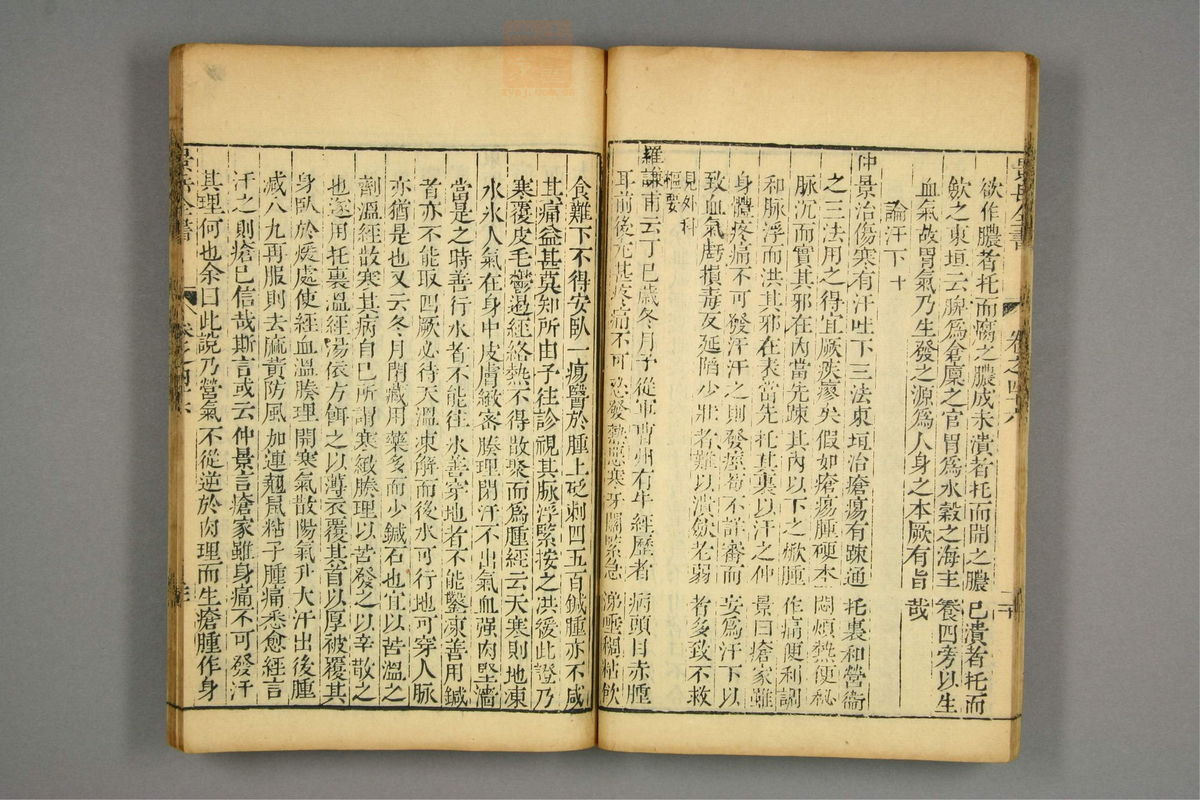 欲作膿者托而腐之膿成未潰者托而開之膿已潰者托而
飲之東垣云脾為倉廩之官胃為水穀之海主養四旁以生
血氣故胃氣乃生發之源為人身之本厥有旨哉
論汗下 十
仲景治傷寒有汗吐下三法東垣治瘡瘍有疎通托裏和營衞
之三法用之得宜厥疾瘳矣假如瘡瘍腫硬木悶煩熱便秘
脉沉而實其邪在內當先疎其內以下之焮腫作痛便利調
和脉浮而洪其邪在表當先托其裏以汗之仲景曰瘡家雖
身體疼痛不可發汗汗之則發痙苟不詳審而妄為汗下以
致血氣虧損毒反延陷少壯者難以潰歛老弱者多致不救
見外科
樞要
羅謙甫云丁巳歲冬月予從軍曹州有年經歷者病頭目赤腫
耳前後尤甚疼痛不可忍發熱惡寒牙關緊急涕唾稠粘飲
食難下不得安臥一瘍醫於腫上砭刺四五百鍼腫亦不減
其痛益甚莫知所由予往診視其脉浮緊按之洪緩此證乃
寒覆皮毛鬱遏經絡熱不得散聚而為腫經云天寒則地凍
水氷人氣在身中皮膚緻密腠理閉汗不出氣血强肉堅濇
當是之時善行水者不能往氷善穿地者不能鑿凍善用鍼
者亦不能取四厥必待天溫凍解而後水可行地可穿人脉
亦猶是也又云冬月閉藏用藥多而少鍼石也宜以苦溫之
劑溫經散寒其病自巳所謂寒緻腠理以苦發之以辛散之
也遂用托裏溫經湯依方餌之以薄衣覆其首以厚被覆其
身臥於煖處使經血溫腠理開寒氣散陽氣升大汗出後腫
減八九再服則去麻黃防風加連翹鼠粘子腫痛悉愈經言
汗之則瘡已信哉斯言或云仲景言瘡家雖身痛不可發汗
其理何也余曰此說乃營氣不從逆於肉理而生瘡腫作身
卷之四十六